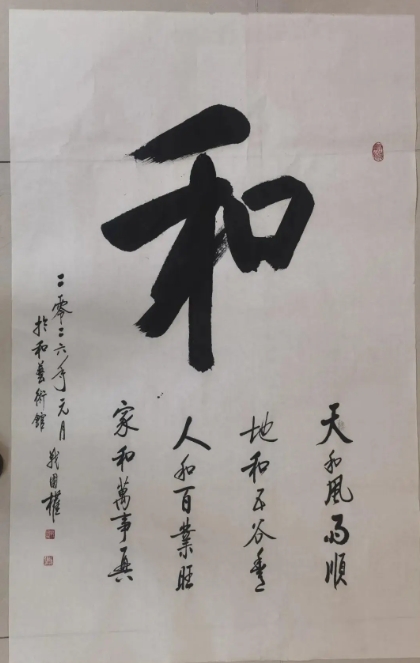 和
天和風雨順
地和五谷豐
人和百業旺
家和萬事興
二零二六年元月
於和藝術館